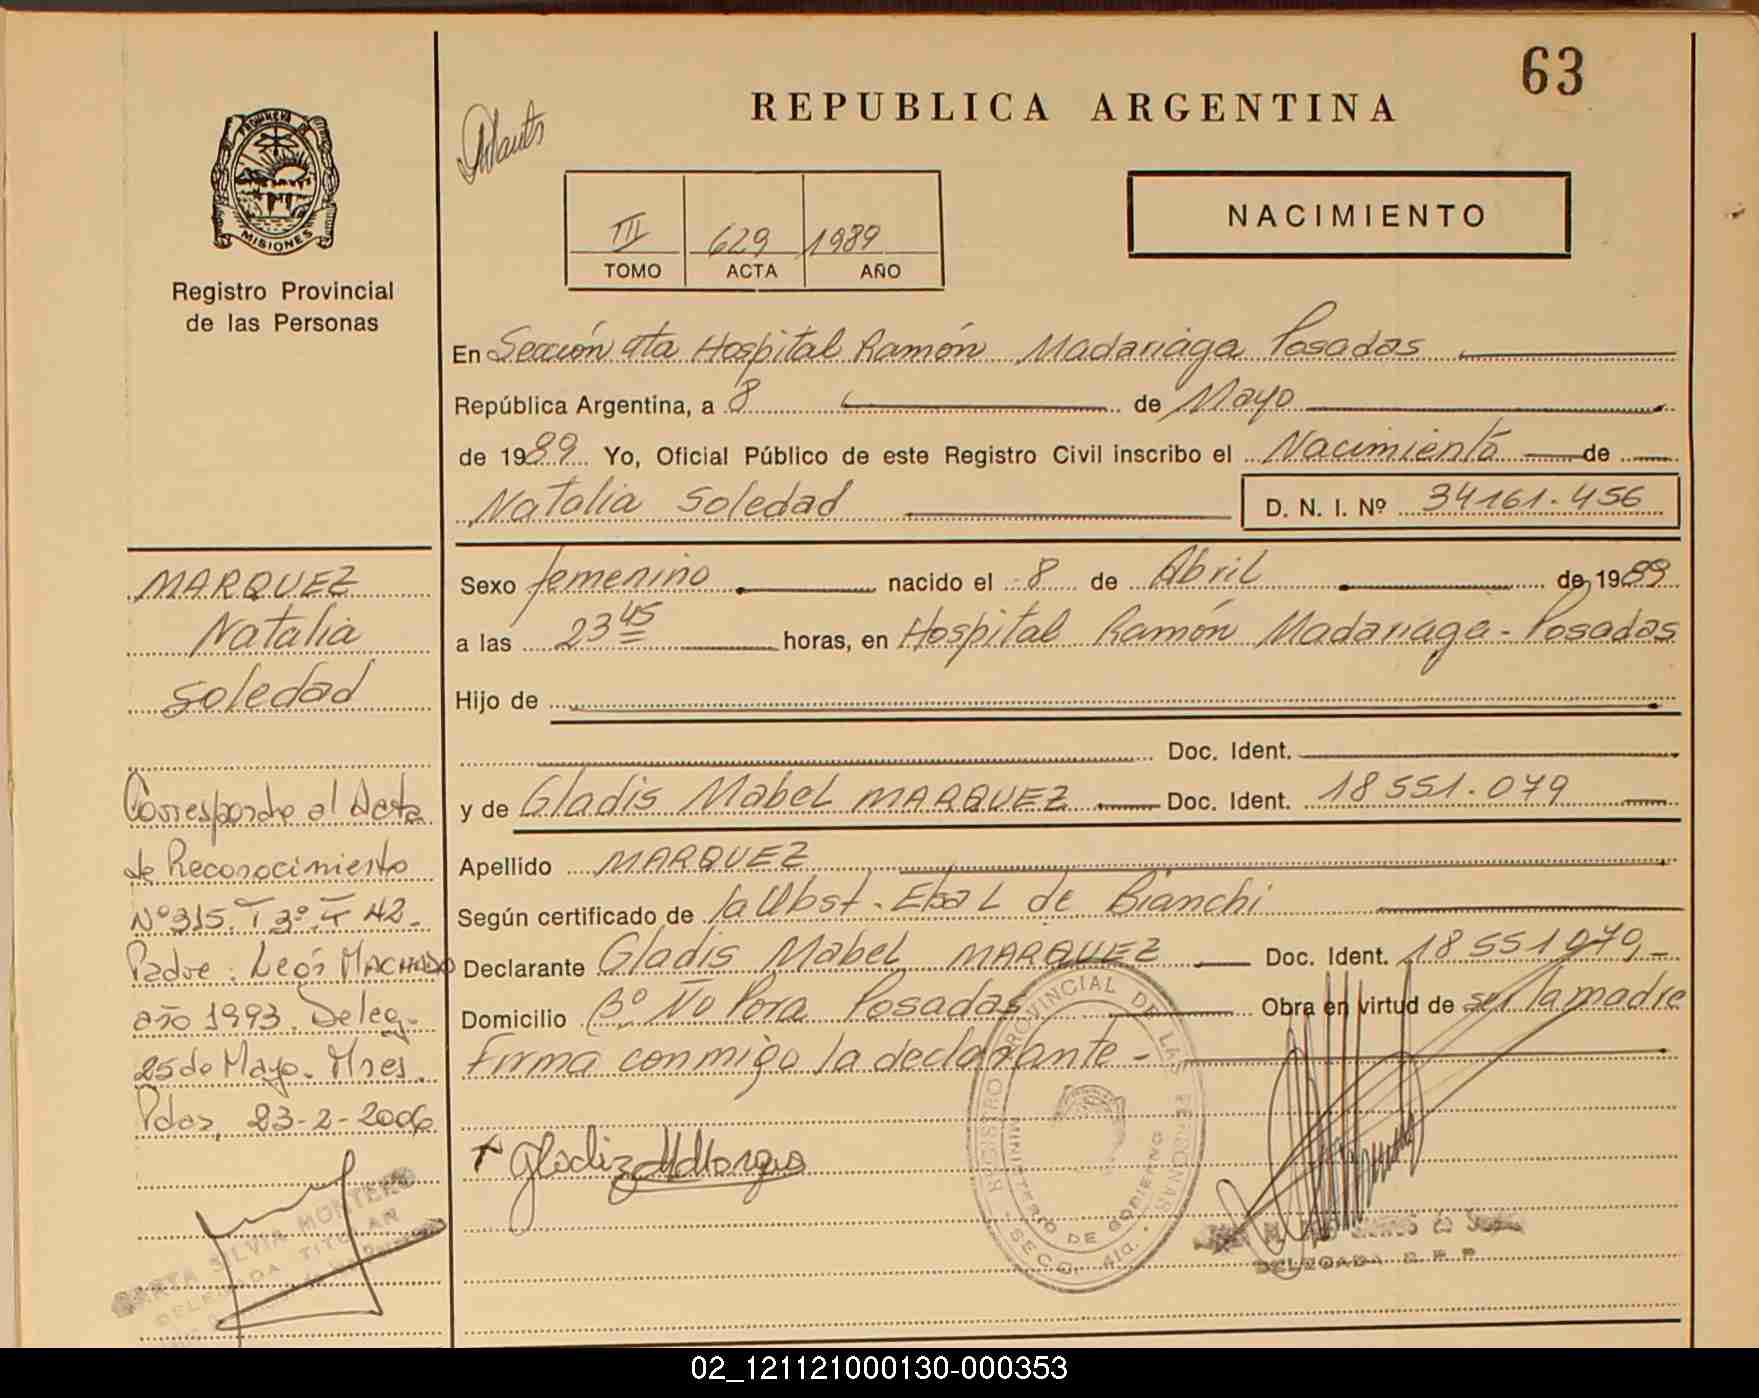 63
REPUBLICA ARGENTINA
PROVINCIA DE
MISIONES
Registro Provincial
de las Personas
NACIMIENTO
III 629 1989
TOMO ACTA AÑO
En Sección 4ta Hospital Ramón Madariaga Posadas
República Argentina, a 8 de Mayo
de 1989 Yo, Oficial Público de este Registro Civil inscribo el Nacimiento de
Natalia Soledad D. N. I. Nº 34161.456
Sexo femenino nacido el 8 de Abril de 1989
a las 23 45 horas, en Hospital Ramón Madariaga - Posadas
Hijo de
Doc. Ident.
y de Gladis Mabel MARQUEZ Doc. Ident. 18551.079
Apellido MARQUEZ
Según certificado de la Obst. de Bianchi
Declarante Gladis Mabel MARQUEZ Doc. Ident. 18551079
Domicilio Bº Ño Pora Posadas Obra en virtud de ser la madre
Firma conmigo la declarante -
REGISTRO PROVINCIAL DE LAS PERSONAS
MINISTERIO DE GOBIERNO
SECC. 4ta.
DELEGADA
MARQUEZ
Natalia
Soledad
Corresponde al Acta
de Reconocimiento
Nº 315. T 3º. 42-
Padre: León MACHADO
año 1993. Deleg.
25 de Mayo. Mnes.
Pdas, 23-2-2006
MARTA SILVIA MONTERO
DELEGADA TITULAR
02_121121000130-000353